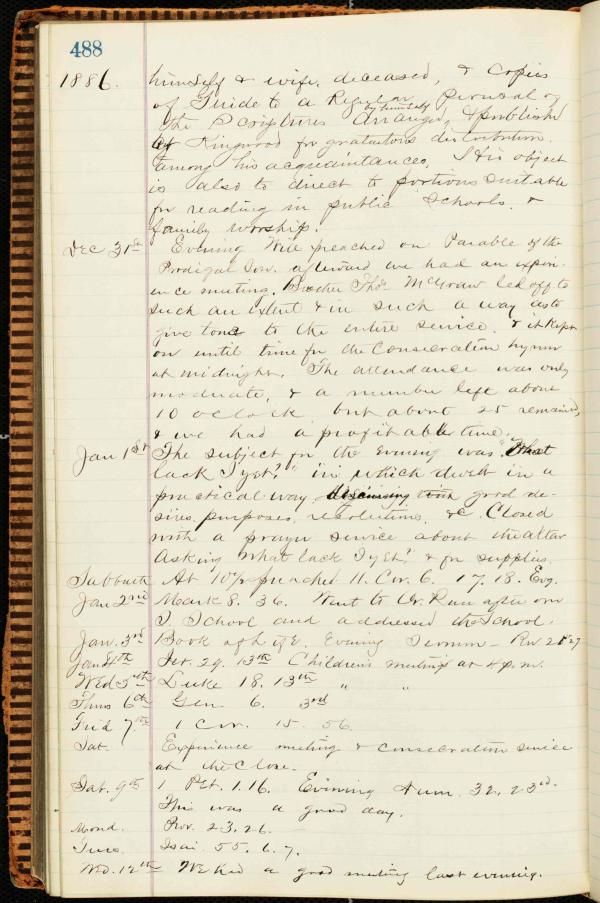 488
1886. himself & wife, deceased, & copies
of Guide to a Regular perusal of
by himself
the Scriptures Arranged, & published
at Kingwood for gratuitous distribution
among his acquaintances. His object
is also to direct to portions suitable
for reading in public schools, &
family worship.
Dec 31st Evening Wile preached on Parable of the
Prodigal Son. afterward we had an exper-
ience meeting. Brother Thos. McGraw led off to
such an extent & in such a way as to
give tone to the entire service, & it kept
on until time for the Consecration hymn
at midnight. The attendance was only
moderate, & a number left about
10 oclock but about 25 remained,
& we had a profitable time.
Jan 1st The subject for the evening was "What
lack I yet?" in which dwelt in a
practical way good de-
sires, purposes, resolutions, &c. Closed
with a prayer service about the altar
Asking What lack I yet? & for supplies.
Sabbath At 10½ preached II. Cor. 6. 17.18. Evg.
Jan 2nd Mark 8. 36. Went to Run after our
S. School and addressed the School.
Jan. 3rd Book of life. Evening Sermon - Rev 21.27
Jan 4th Jer. 29. 13th Children's meeting at 4 p.m.
Wed 5th Luke 18. 13th " "
Thurs 6th Gen. 6. 3rd
Frid 7th 1 Cor. 15. 56.
Sat. Experience meeting & consecration service
at the close.
Sat. 9th 1 Pet. 1.16. Evening Num. 32. 23rd.
This was a good day.
Mond. Prov. 23. 26.
Tues. Isai. 55. 6. 7.
Wed. 12th We had a good meeting last evening.